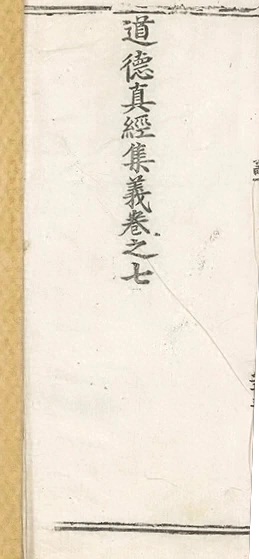 道德真經集義卷之七